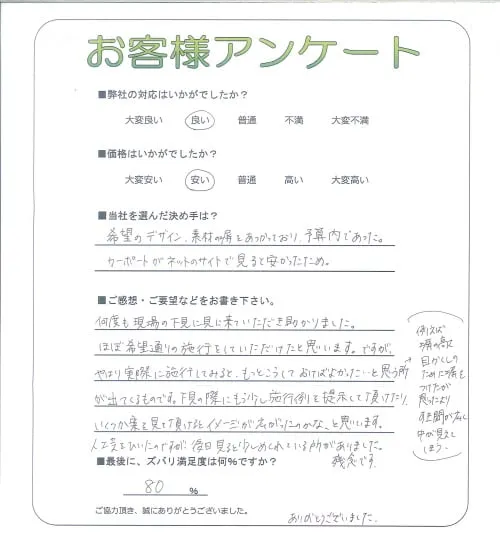 お客様アンケート
■弊社の対応はいかがでしたか？
大変良い 良い 普通 不満 大変不満
■価格はいかがでしたか？
大変安い 安い 普通 高い 大変高い
■当社を選んだ決め手は？
希望のデザイン、素材の塀をあつかっており、予算内であった。
カーポートがネットのサイトで見ると安かったため。
■ご感想・ご要望などをお書き下さい。
何度も現場の下見に見に来ていただき助かりました。
ほぼ希望通りの施行をしていただけたと思います。ですが、
やはり実際に施行してみると、もっとこうしておけばよかった…と思う所
が出てくるものです。下見の際にもう少し施行例を提示して頂けたり、
いくつか案を見て頂けるとイメージが広がったのかな、と思います。
人工芝をひいたのですが、後日見ると少しめくれている所がありました。
残念です。
例えば
塀の高さ
目かくしの
ために塀も
つけたが
思ったより
すき間が広く
中が見えて
しまう。
■最後に、ズバリ満足度は何％ですか？
80 ％
ご協力頂き、誠にありがとうございました。
ありがとうございました。